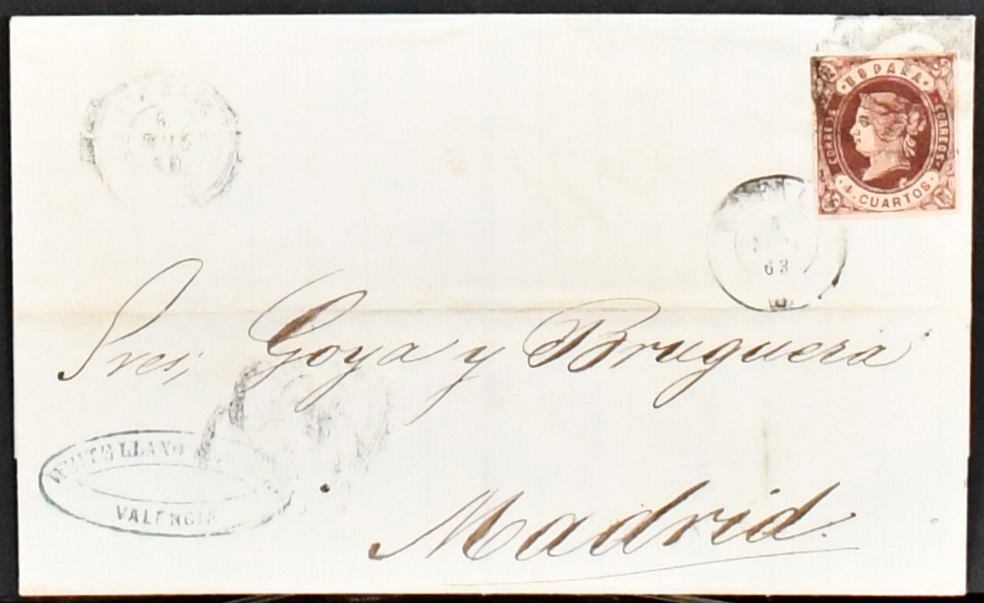 ESPAÑA
CORREOS CORREOS
4 CUARTOS
5
63
6
Sres, Goya y Bruguera
LLANO
VALENCIA
Madrid.